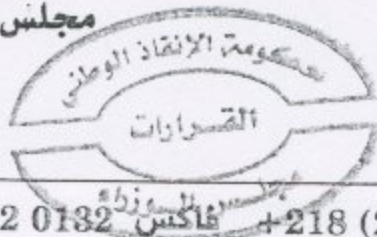 مجلس
حكومة الانقاذ الوطني
القرارات
مجلس الوزراء
2 0132 فاكس +218 (2